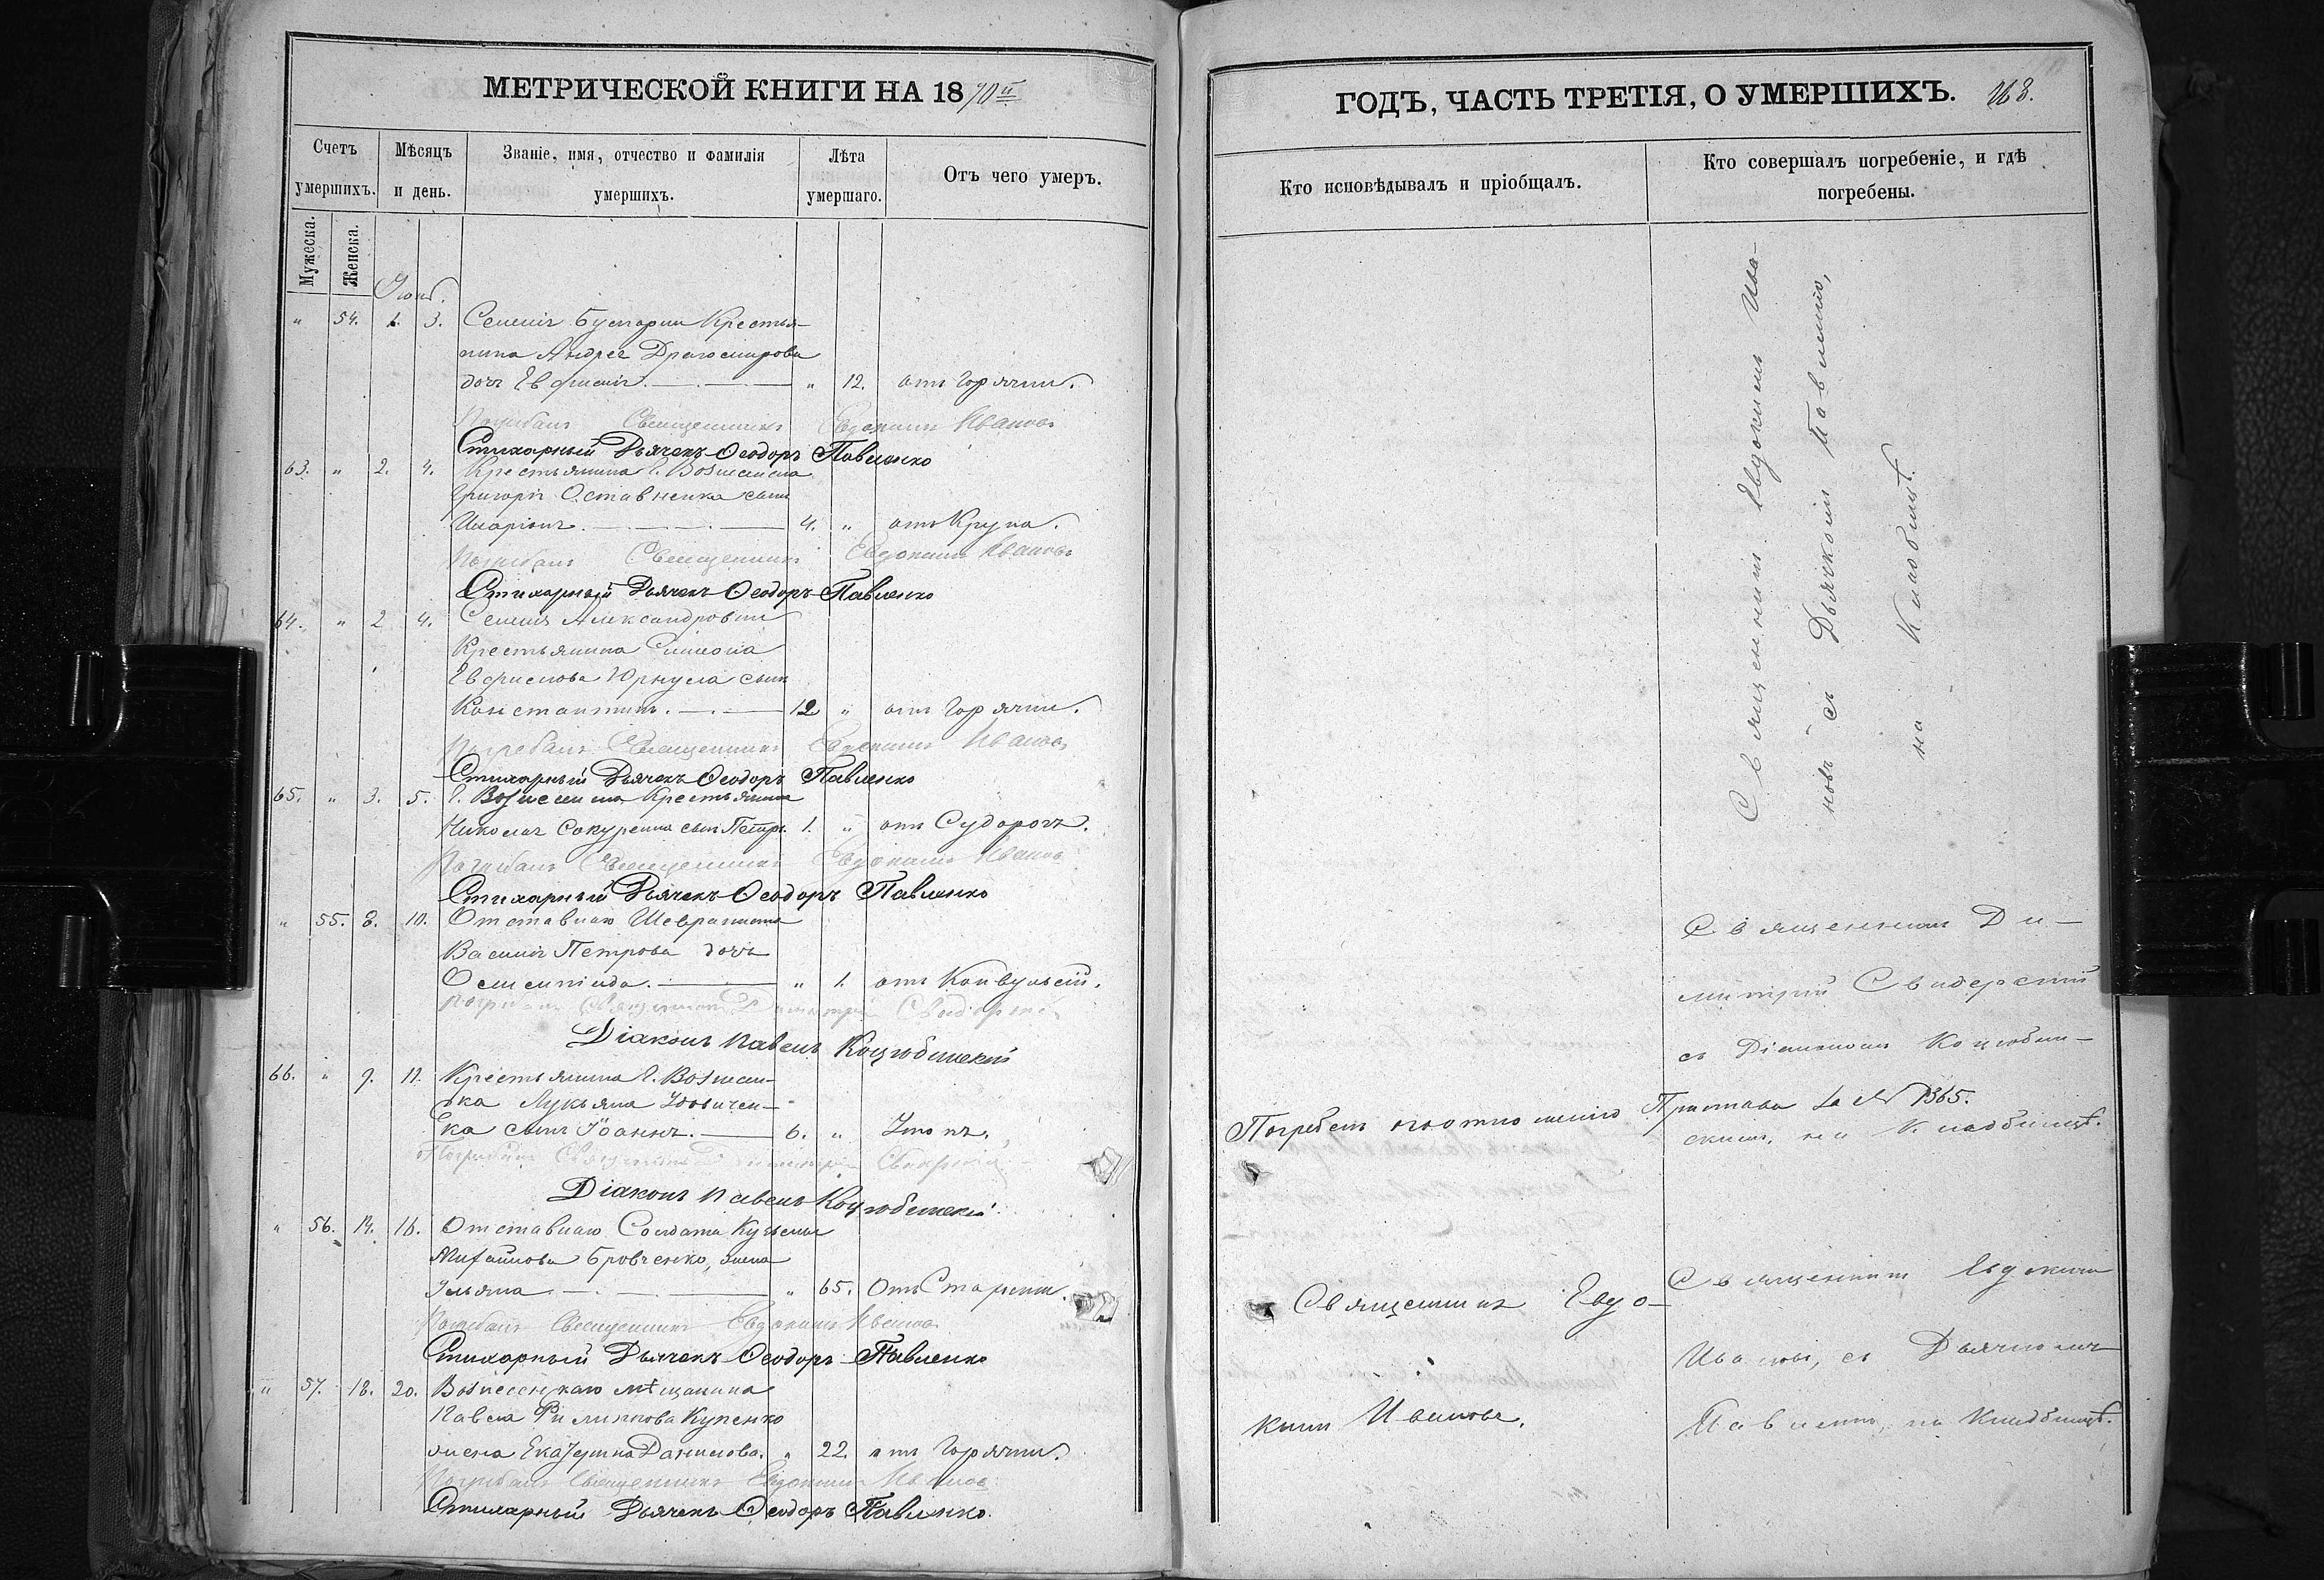 МЕТРИЧЕСКОЙ КНИГИ НА 1870й
Счетъ умершихъ.
Мѣсяцъ и день.
Званіе, имя, отчество и фамилія умершихъ.
Лѣта умершаго.
Отъ чего умеръ.
Мужеска.
Женска.
" 54. 1. 3. Крестья-
нина Андрея Драгомирова
дочь " 12. отъ горячки.
Погребалъ Священникъ Евдокимъ Ивановъ
Стихарный Дьячекъ Ѳеодоръ Павленко
63. " 2. 4. Крестьянина г. Вознесенска
Григорія сынъ
Иларіонъ. 4. " отъ Крупа.
Погребалъ Священникъ Евдокимъ Ивановъ
Стихарный Дьячекъ Ѳеодоръ Павленко
64. " 2 4. Александровки
Крестьянина Симеона
сынъ
Константинъ. 12 " отъ горячки.
Погребалъ Священникъ Евдокимъ Ивановъ
Стихарный Дьячекъ Ѳеодоръ Павленко
65. " 3. 5. г. Вознесенска Крестьянина
Николая сынъ Петръ. 1. " отъ Судорогъ.
Погребалъ Священникъ Евдокимъ Ивановъ
Стихарный Дьячекъ Ѳеодоръ Павленко
" 55. 8. 10. Отставнаго
Василія Петрова дочь
" 1. отъ Конвульсій.
Погребалъ Священникъ Димитрій Свидерскій
Діаконъ Павелъ Коцюбинскій
66. " 9. 11. Крестьянина г. Вознесен-
ска Лукьяна Удовичен-
ка сынъ Іоаннъ. 6. "
Погребалъ Священникъ Димитрій Свидерскій
Діаконъ Павелъ Коцюбинскій
" 56. 14. 16. Отставнаго Солдата Кузьмы
Михайлова Бровченко, жена
Ульяна " 65. Отъ Старости.
Погребалъ Священникъ Евдокимъ Ивановъ
Стихарный Дьячекъ Ѳеодоръ Павленко
" 57. 18. 20. Вознесенскаго мѣщанина
Павла Филиппова Купенко
жена Екатерина Данилова. " 22. отъ горячки.
Погребалъ Священникъ Евдокимъ Ивановъ
Стихарный Дьячекъ Ѳеодоръ Павленко
ГОДЪ, ЧАСТЬ ТРЕТІЯ, О УМЕРШИХЪ. 168.
Кто исповѣдывалъ и пріобщалъ.
Кто совершалъ погребеніе, и гдѣ погребены.
Священникъ Евдокимъ Ива-
новъ съ Дьячкомъ Павленко,
на Кладбищѣ.
Священникъ Ди-
митрій Свидерскій
съ Діакономъ Коцюбин-
Пристава за № 1365.
скимъ, на Кладбищѣ.
Священникъ Евдо-
кимъ Ивановъ.
Священникъ Евдокимъ
Ивановъ, съ Дьячкомъ
Павленко, на Кладбищѣ.